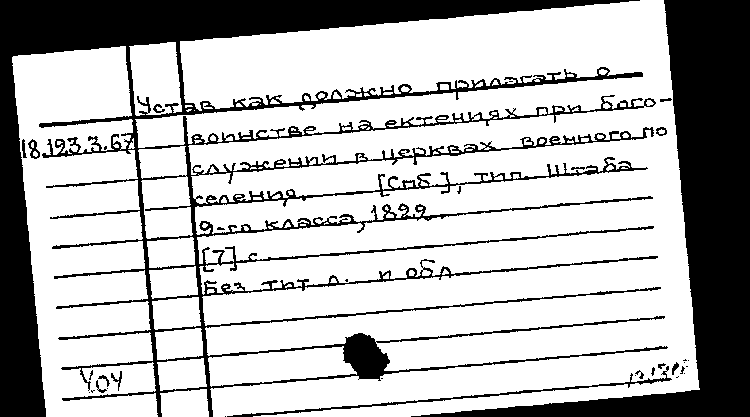 Устав как должно прилагать о
18.193.3.67 воинстве на ектениях при бого-
служении в церквах военного по
селения. [Спб.], тип. Штаба
9-го класса, 1829.
[7] с.
Без тит. л. и обл.